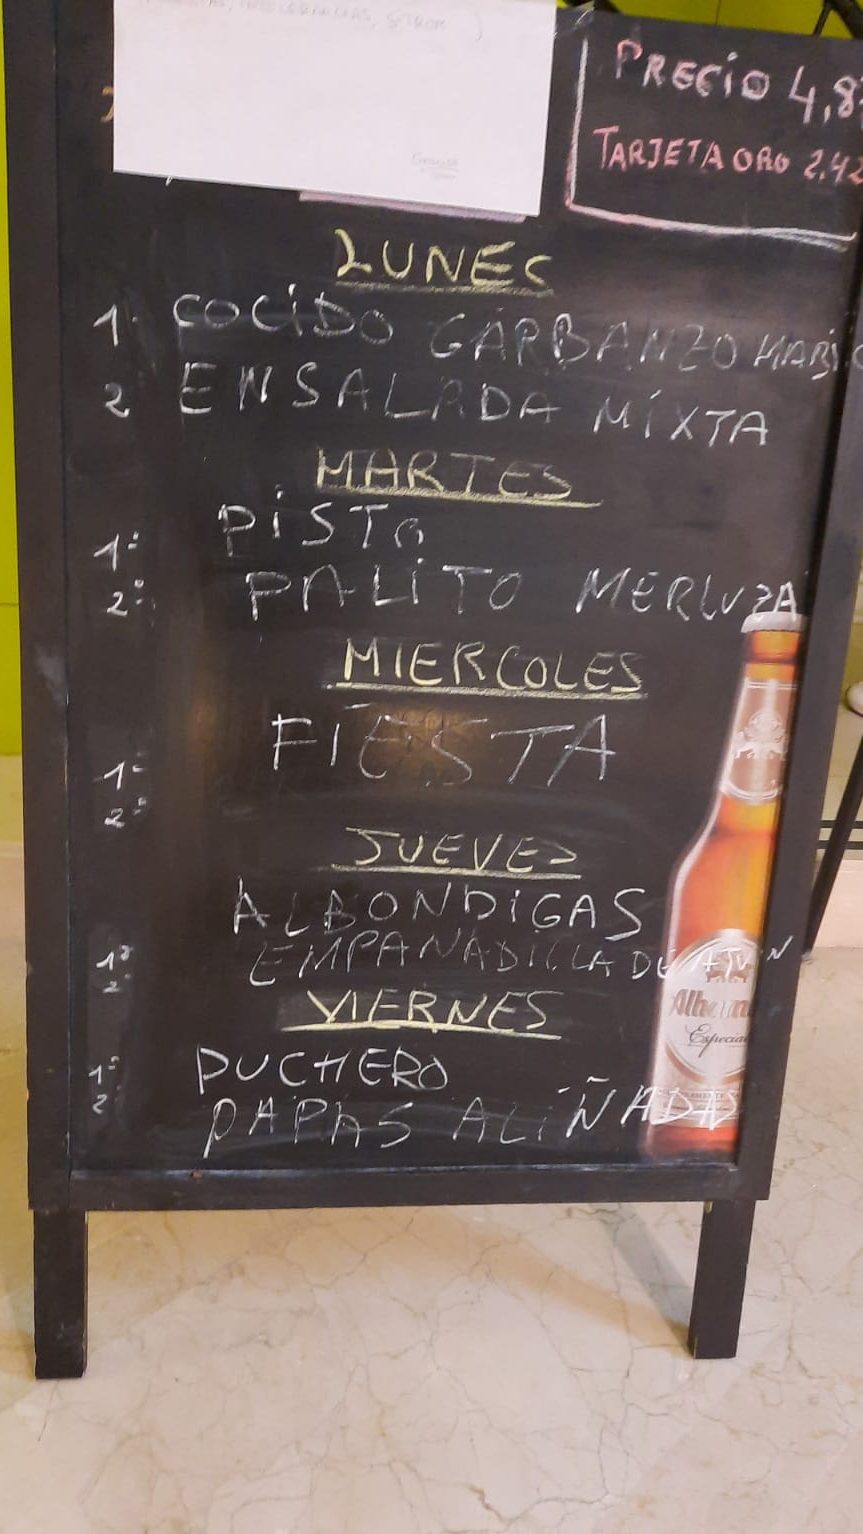 PRECIO 4,8
TARJETA ORO 2.42
LUNES
1· COCIDO GARBANZO MARIS
2 ENSALADA MIXTA
MARTES
1º PISTO
2º PALITO MERLUZA
MIERCOLES
FIESTA
1º
2º
JUEVES
ALBONDIGAS
1º EMPANADILLA DE ATUN
2º
VIERNES
1º PUCHERO
2º PAPAS ALIÑADAS
Alham
Especial